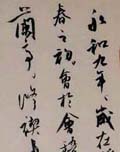 永和九年歲在
春之初會於會稽
蘭亭修禊事